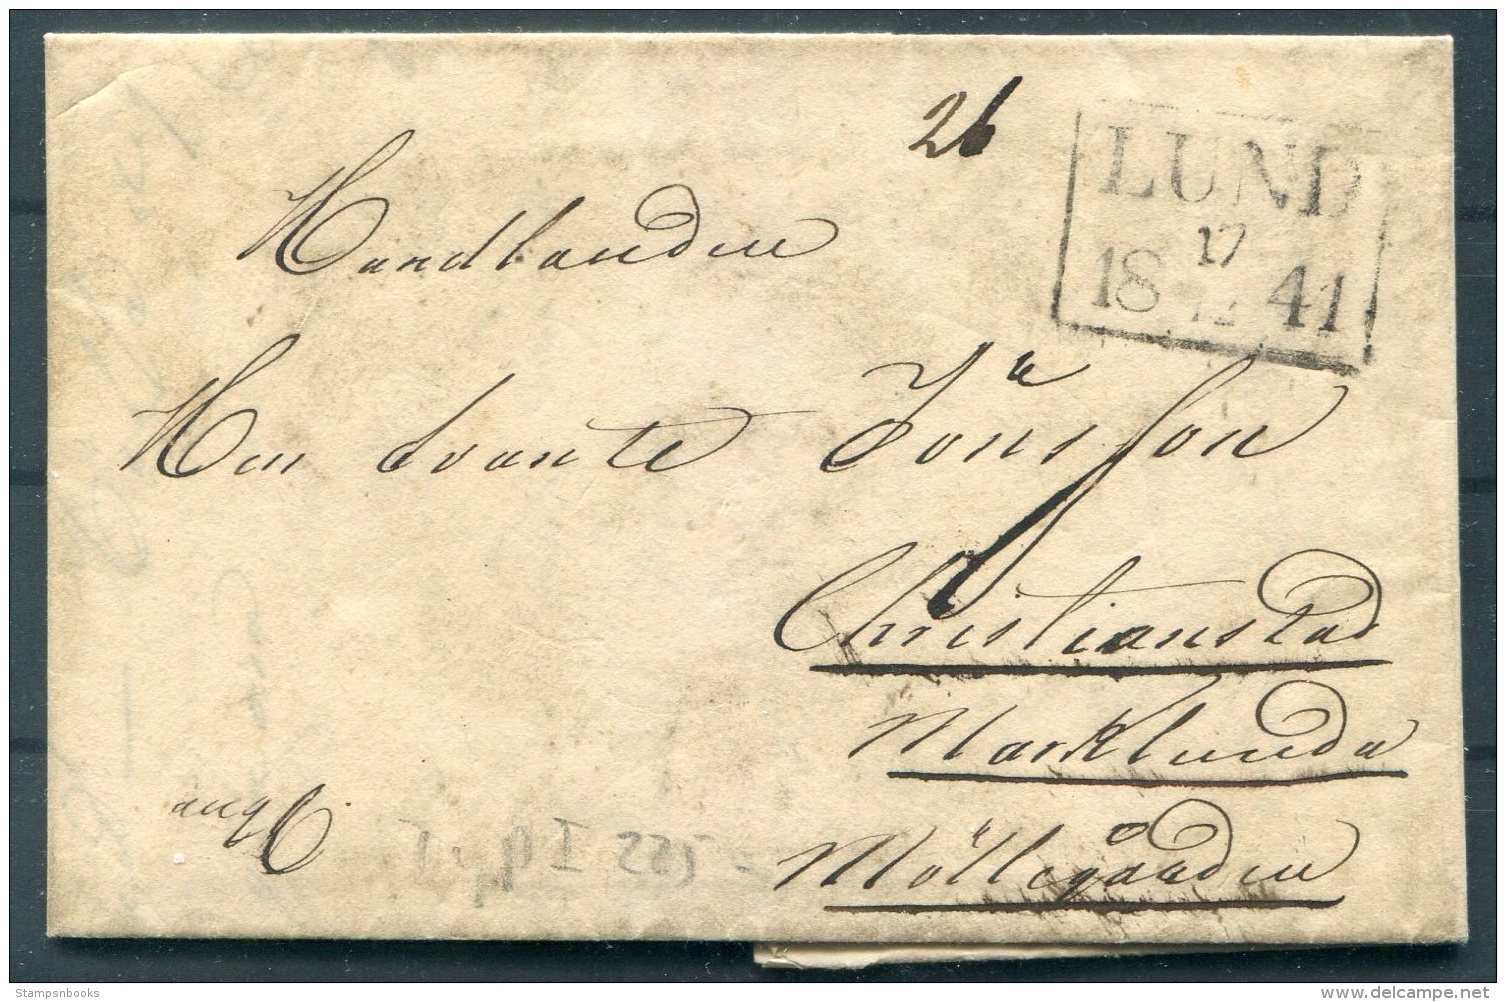 26
LUND
17
18 12 41
Handlanden
Herr Svante Jönsson
Christianstad
Marklunda
Möllegården
StampsnBooks
delcampe.net